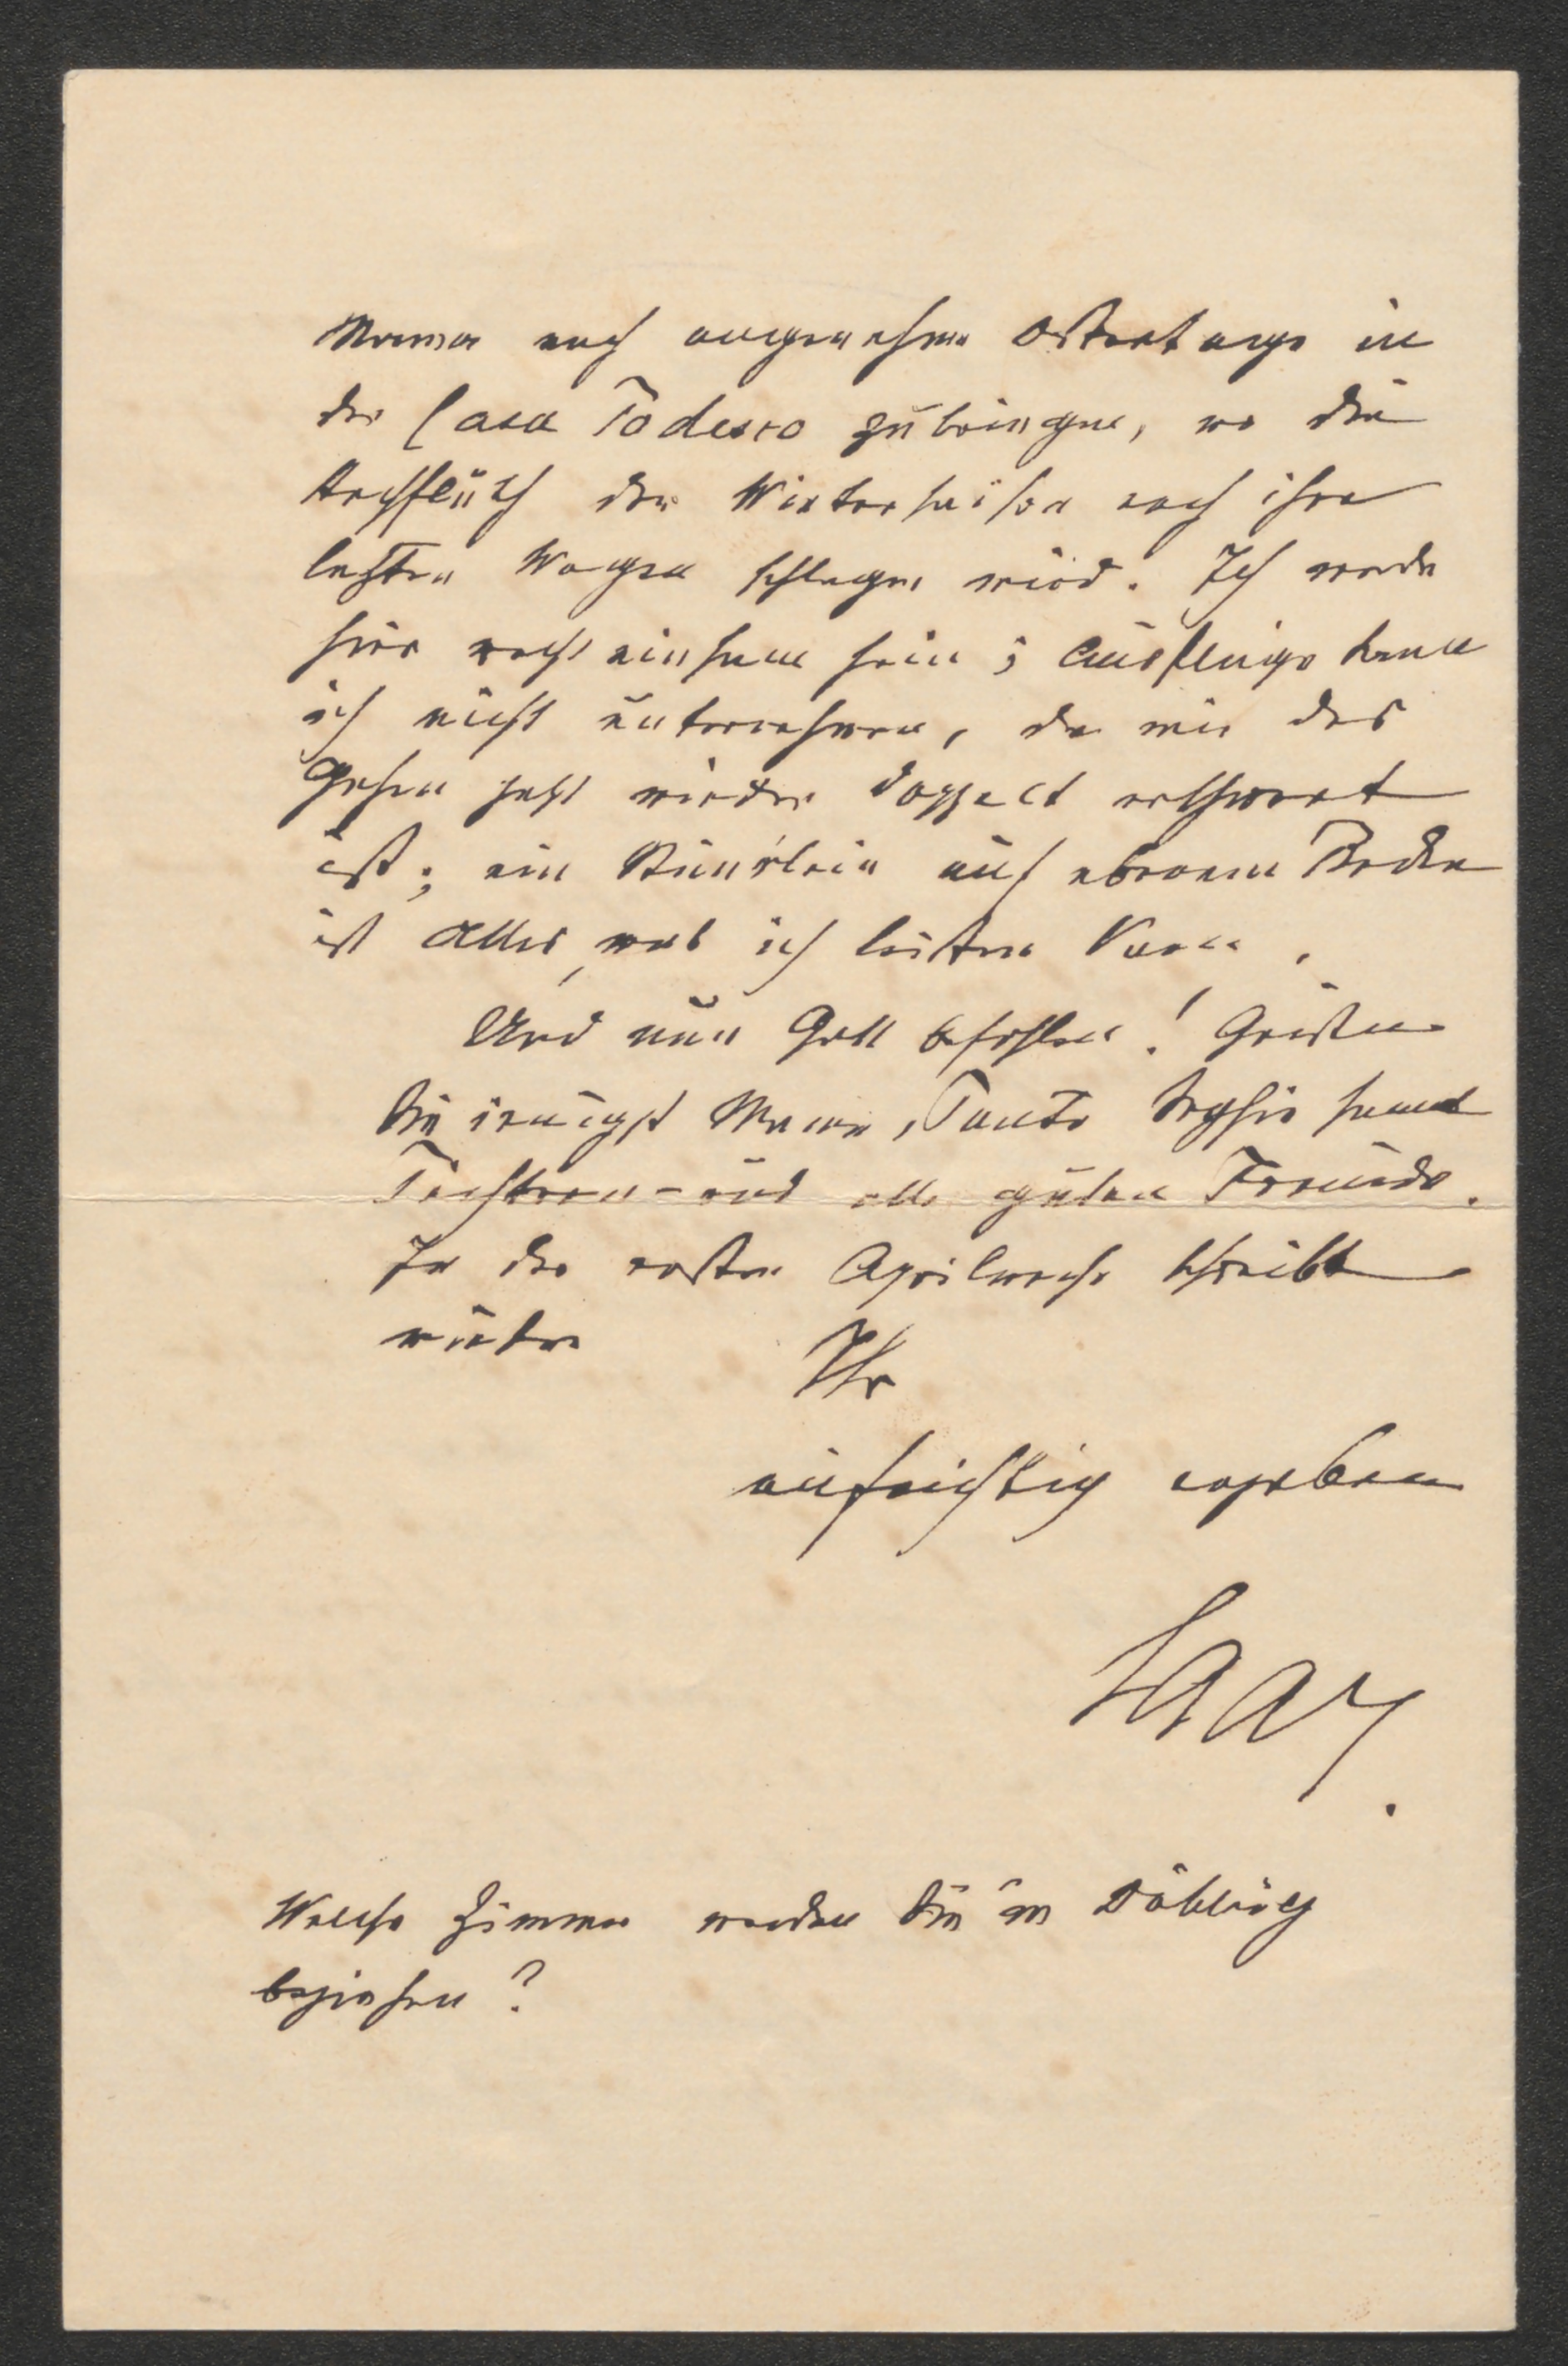 Mama noch angenehme Ostertage in
der Casa Todesco zubringen, wo die
Hochfluth der Wintersaison noch ihre
letzten Wogen schlagen wird. Ich werde
hier recht einsam sein; Ausflüge kann
ich nicht unternehmen, da mir das
Gehen jetzt wieder doppelt erschwert
ist; ein Stündlein auf ebenem Boden
ist Alles, was ich leisten kann.
Und nun Gott befohlen! Grüßen
Sie innigst Mama, Tante Sophie sammt
Töchtern – und alle guten Freunde.
In der ersten Aprilwoche schreibt
wieder Ihr
aufrichtig ergebener
Saar.
Welche Zimmer werden Sie in Döbling
beziehen?